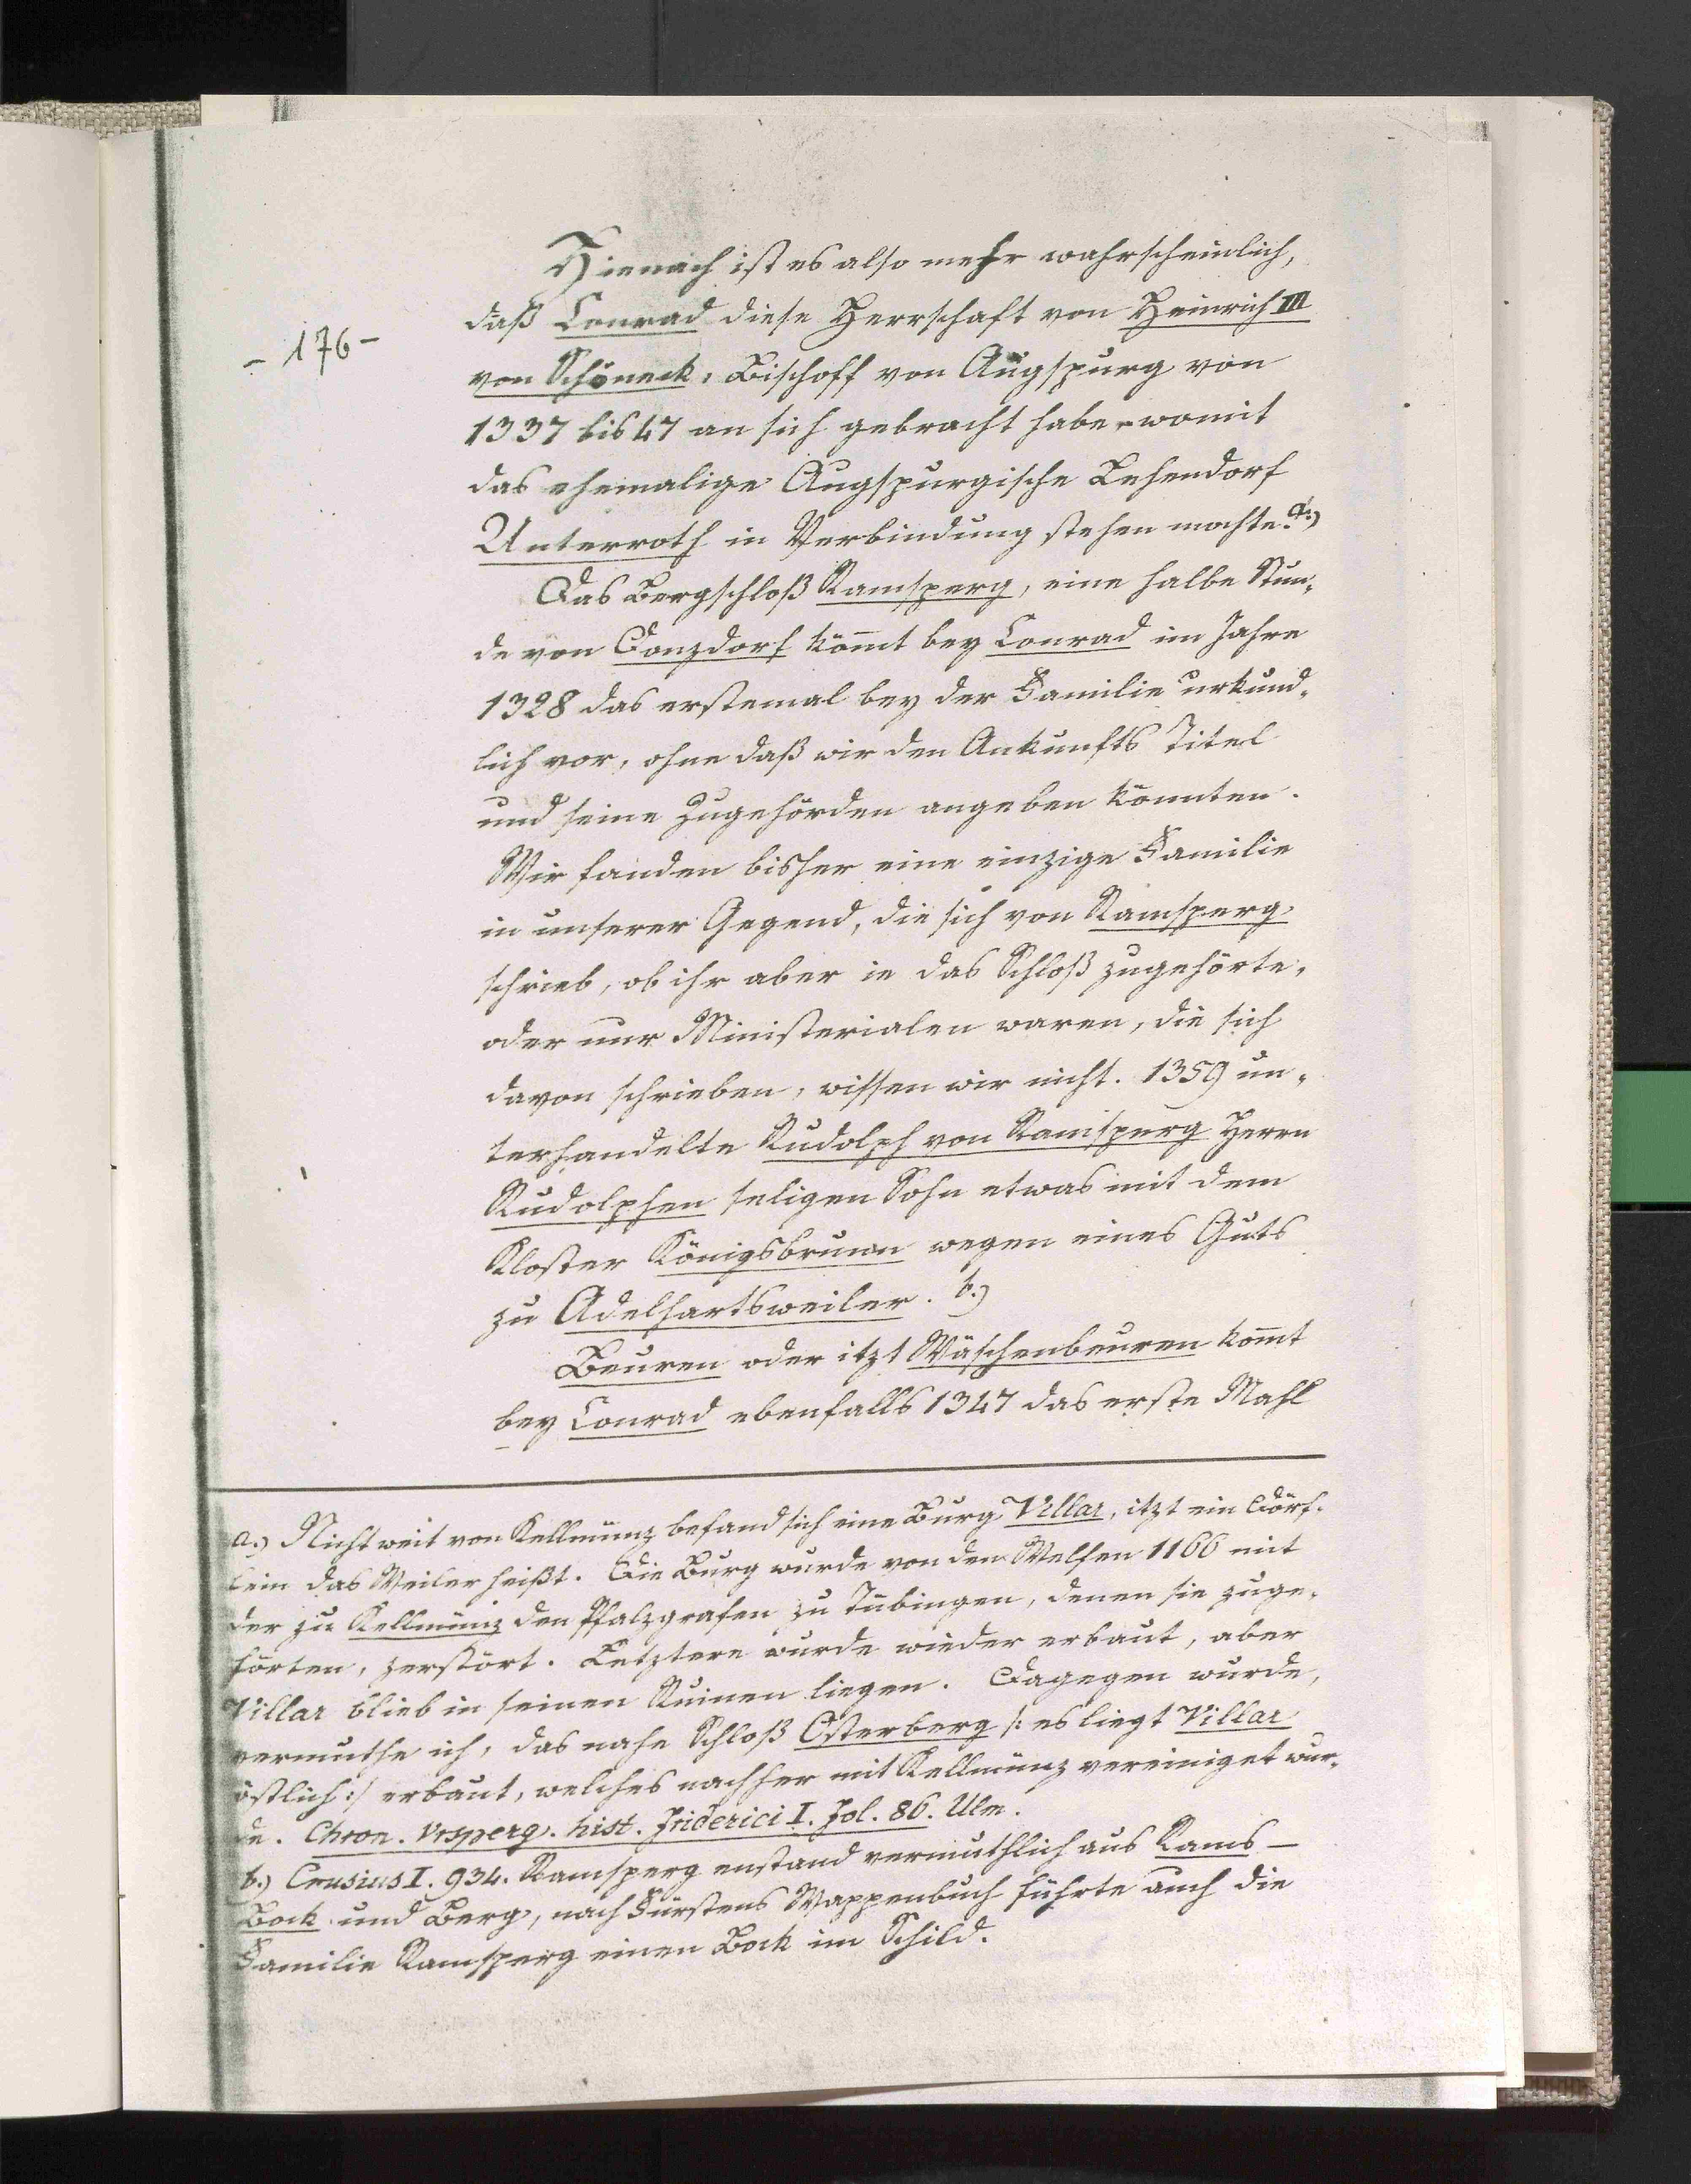 - 176 -
Hienach ist es also mehr wahrscheinlich,
daß Conrad diese Herrschaft von Heinrich III
von Schöneck, Bischoff von Augspurg von
1337 bis 47 an sich gebracht habe, womit
das ehemalige Augspurgische Lehendorf
Unterroth in Verbindung stehen mochte. a.)
Das Bergschloß Ramsperg, eine halbe Stun-
de von Donzdorf kömt bey Conrad im Jahre
1328 das erstemal bey der Familie urkund-
lich vor, ohne daß wir den Ankunfts Titel
und seine Zugehörden angeben könnten.
Wir fanden bisher eine einzige Familie
in unserer Gegend, die sich von Ramsperg
schrieb, ob ihr aber ie das Schloß zugehörte,
oder nur Ministerialen waren, die sich
davon schrieben, wissen wir nicht. 1359 un-
terhandelte Rudolph von Ramsperg Herrn
Rudolphen seligen Sohn etwas mit dem
Kloster Königsbrunn wegen eines Guts
zu Adelhartsweiler. b.)
Beuren oder itzt Wäschenbeuren komt
bey Conrad ebenfalls 1347 das erste Mahl
a.) Nicht weit von Kellmünz befand sich eine Burg Villar, itzt ein Dörf-
lein das Weiler heißt. Die Burg wurde von den Welfen 1166 mit
der zu Kellmünz den Pfalzgrafen zu Tübingen, denen sie zuge-
hörten, zerstört. Letztere wurde wieder erbaut, aber
Villar blieb in seinen Ruinen liegen. Dagegen wurde,
vermuthe ich, das nahe Schloß Osterberg /: es liegt Villar
östlich :/ erbaut, welches nachher mit Kellmünz vereiniget wur-
de. Chron. Vrsperg. hist. Friderici I. fol. 86. Ulm.
b.) Crusius I. 934. Ramsperg enstand vermuthlich aus Rams—
Bock und Berg, nach Fürstens Wappenbuch führte auch die
Familie Ramsperg einen Bock im Schild.